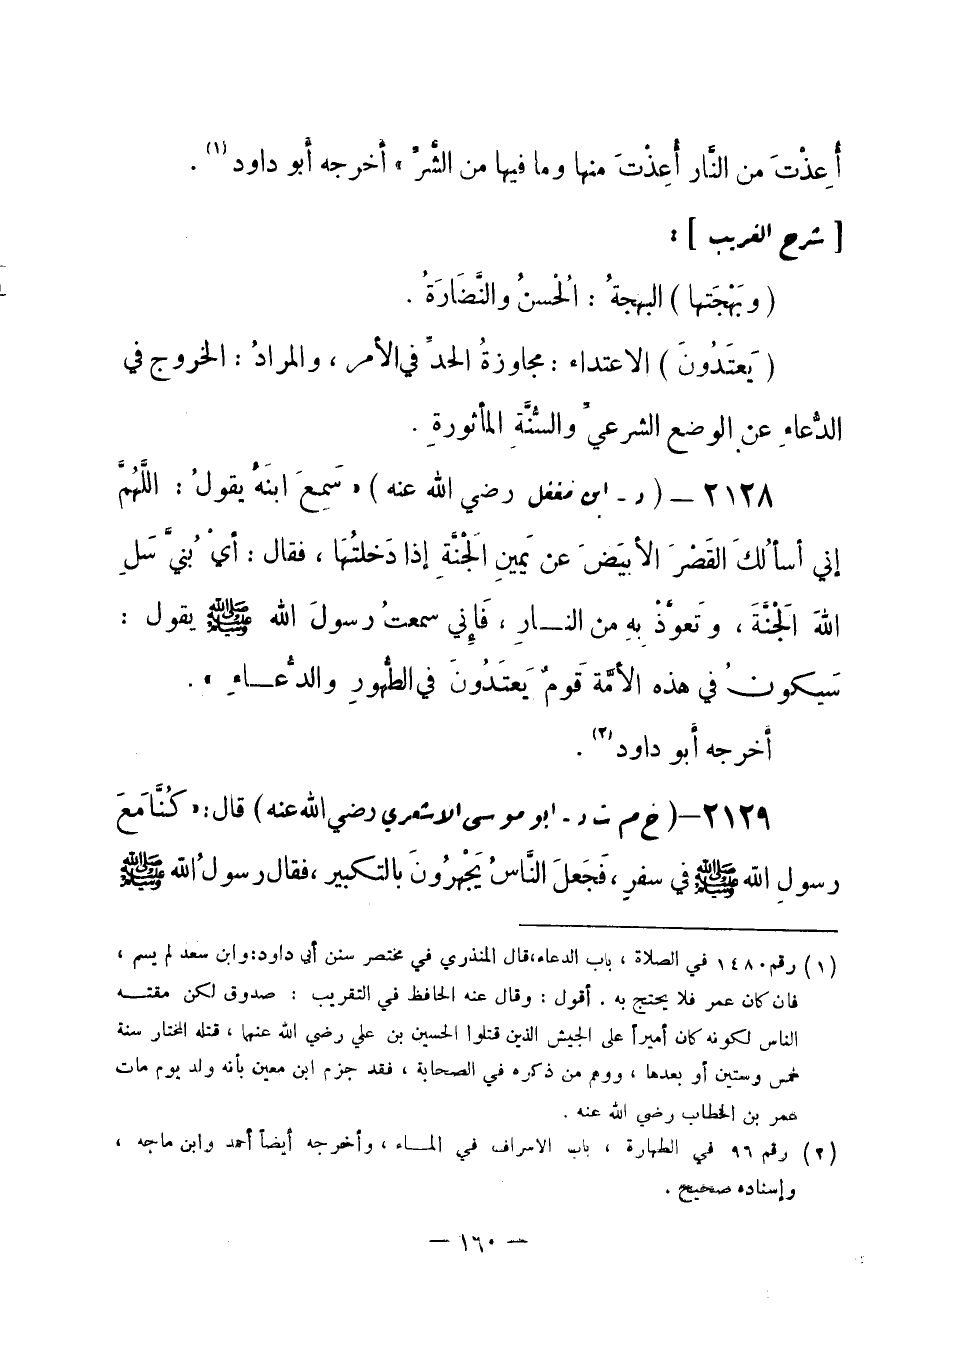 أُعِذْتَ من النَّار أُعِذْتَ منها وما فيها من الشَّرِّ » أخرجه أبو داود (١) .
[ شرح الغريب ] :
( وبَهْجَتها ) البهجةُ : الحُسنُ والنَّضَارَةُ .
( يَعتَدُونَ ) الاعتداء : مجاوزةُ الحدِّ في الأمر ، والمرادُ : الخروج في
الدُّعاءِ عن الوضع الشرعيِّ والسُّنَّةِ المأثورةِ .
٢١٢٨ - ( د - ابن مغفل رضي الله عنه ) « سَمِعَ ابنَهُ يقولُ : اللَّهُمَّ
إني أسأُلكَ القَصْرَ الأبيَضَ عن يَمينِ الجَنَّةِ إذا دَخلتُهَا ، فقال : أيْ بُنيَّ سَلِ
اللهَ الجَنَّةَ ، وتَعوَّذْ بِهِ من النــارِ ، فَإِني سمعتُ رسولَ الله ﷺ يقول :
سَيكونُ في هذه الأمَّة قَومٌ يَعتَدُونَ في الطُّهورِ والدُّعــاءِ » .
أخرجه أبو داود (٢) .
٢١٢٩ - ( خ م ت د - أبو موسى الأشعري رضي الله عنه ) قال : « كُنَّا مَعَ
رسولِ الله ﷺ في سفرٍ ، فَجَعلَ النَّاسُ يَجْهرُونَ بالتكبير ، فقال رسولُ الله ﷺ
(١) رقم ١٤٨٠ في الصلاة ، باب الدعاء، قال المنذري في مختصر سنن أبي داود: وابن سعد لم يسم ،
فان كان عمر فلا يحتج به . أقول : وقال عنه الحافظ في التقريب : صدوق لكن مقتــه
الناس لكونه كان أميراً على الجيش الذين قتلوا الحسين بن علي رضي الله عنها ، قتله المختار سنة
خمس وستين أو بعدها ، ووهم من ذكره في الصحابة ، فقد جزم ابن معين بأنه ولد يوم مات
عمر بن الخطاب رضي الله عنه .
(٢) رقم ٩٦ في الطهارة ، باب الاسراف في المــاء ، وأخرجه أيضاً أحمد وابن ماجه ،
وإسناده صحيح .
- ١٦٠ -